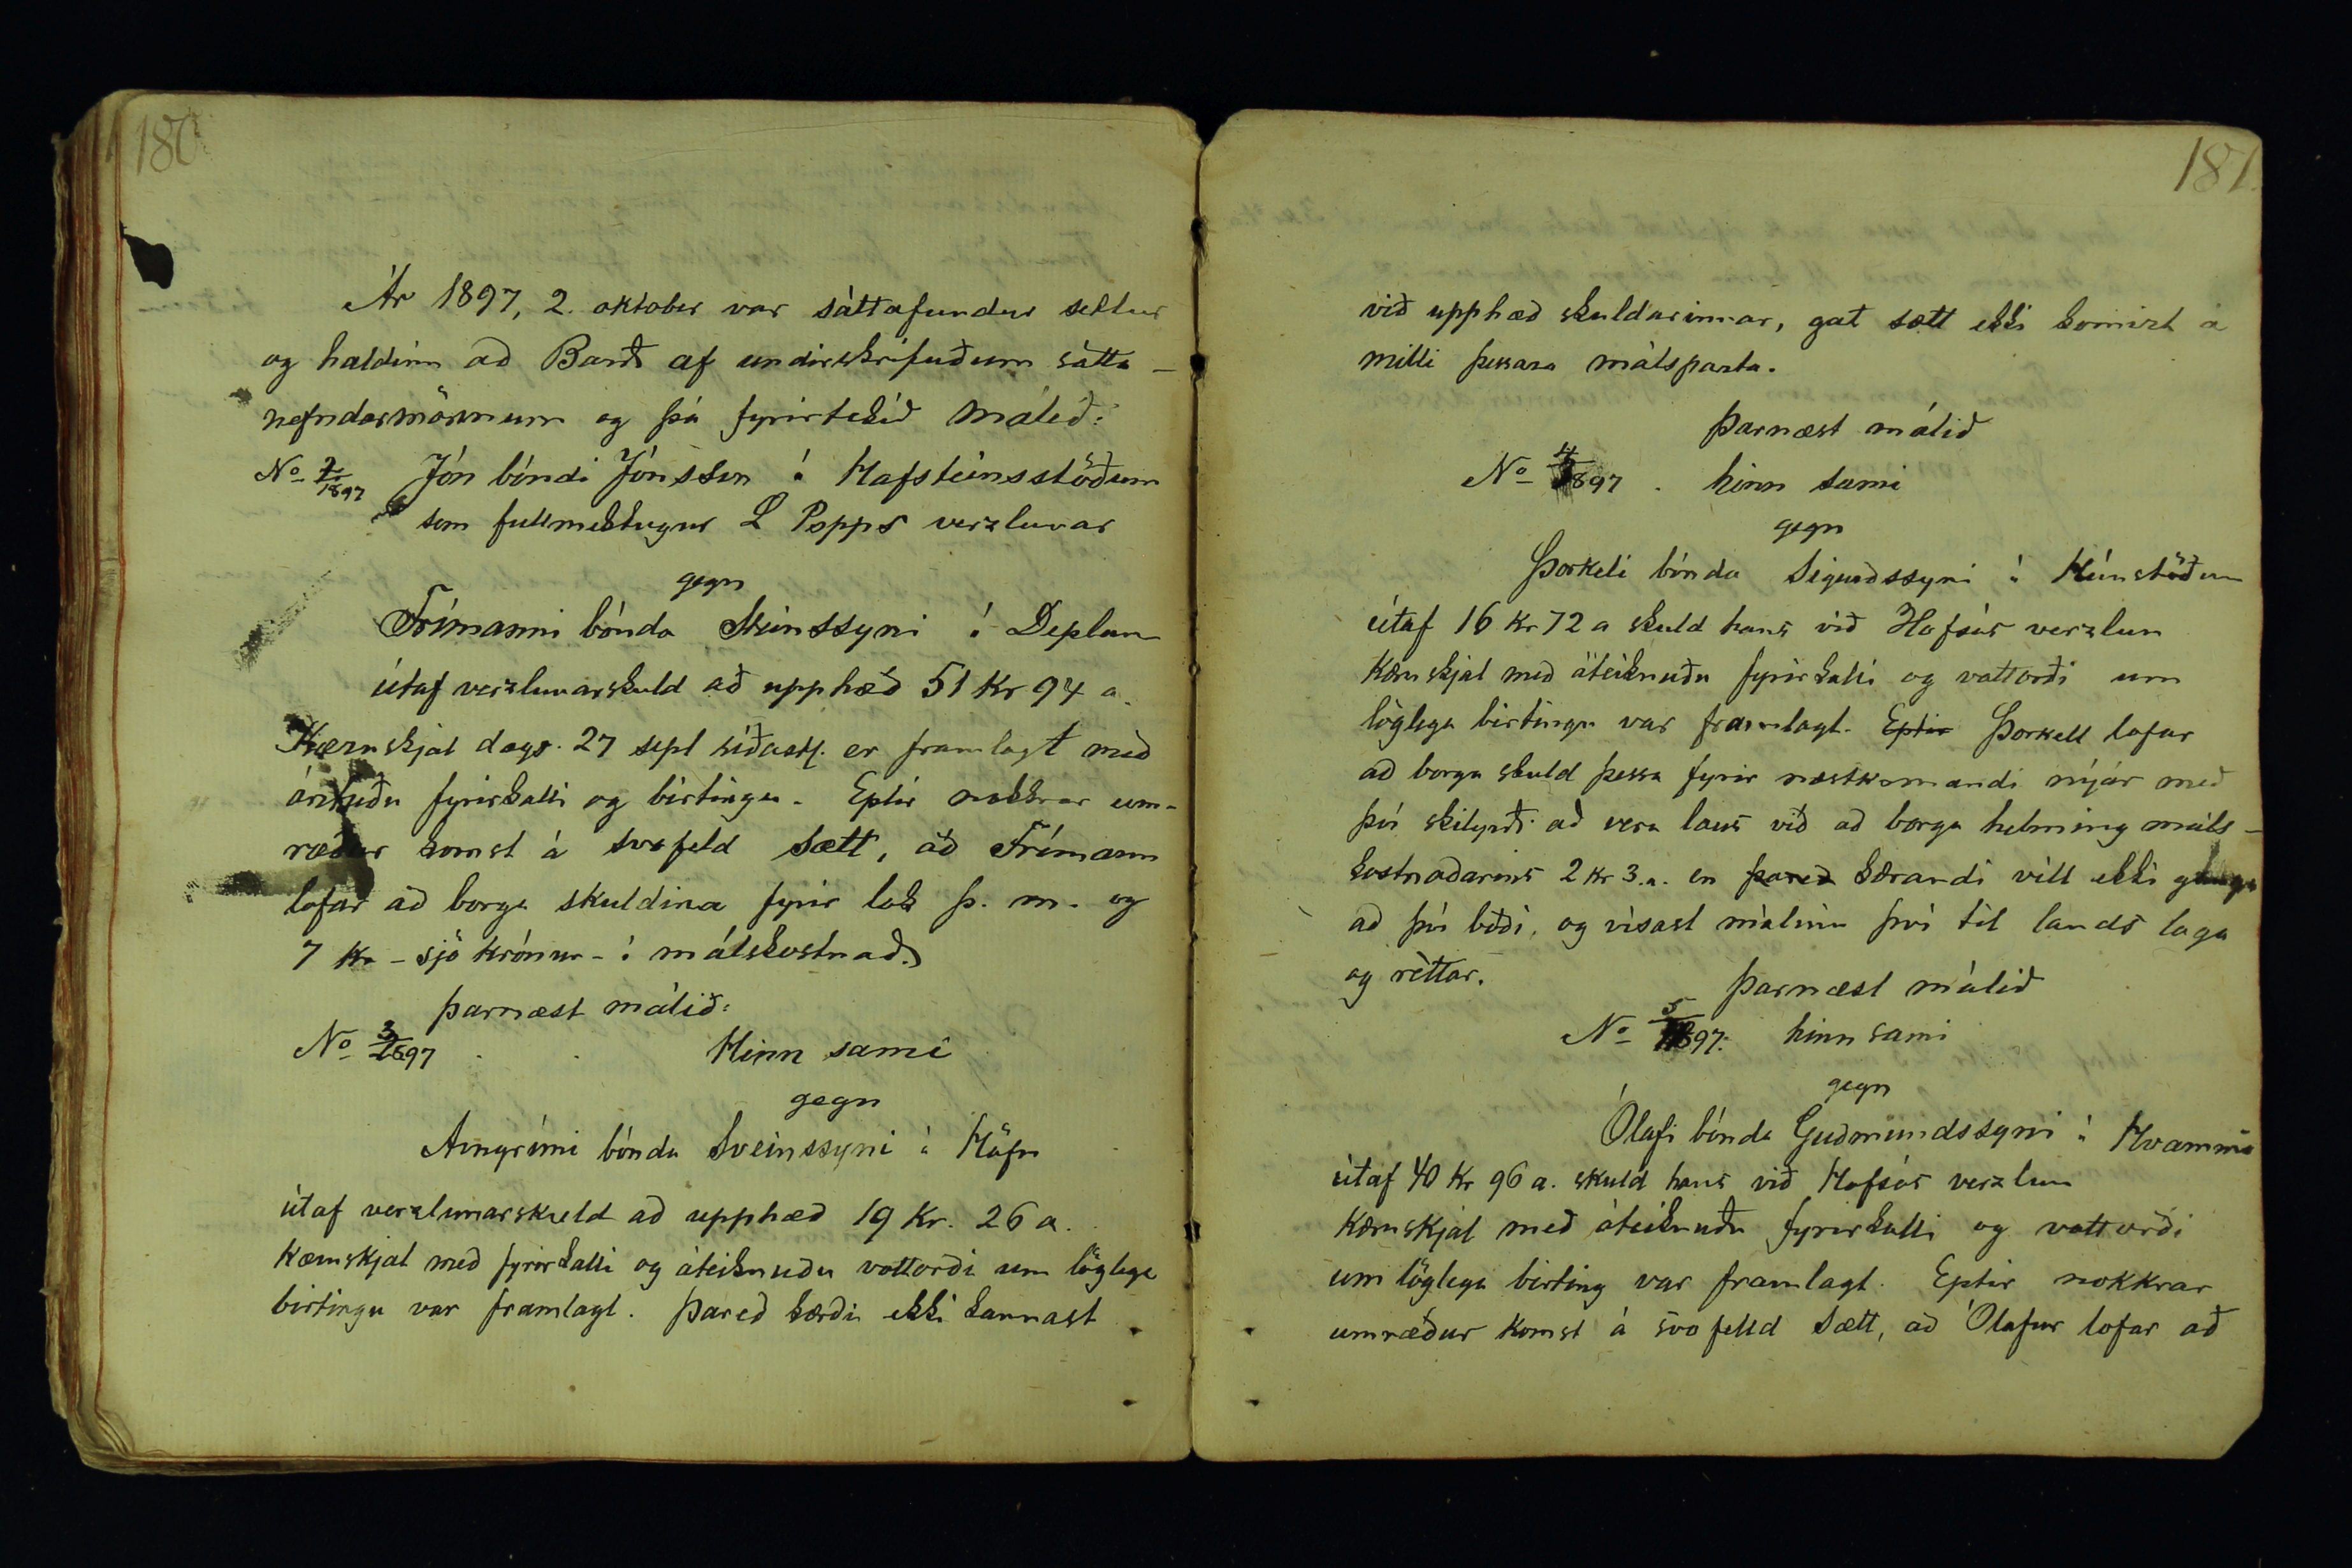 180
Ár 1897, 2. oktober var sáttafundur settur
og haldinn að Barði af undirskrifuðum sátta-
nefndarmönnum og þá fyrirtekið málið:
No 2/1897 Jón bóndi Jónsson á Hafsteinsstöðum
sem fullmektugur L Popps verzlunar
gegn
Frímanni bónda Steinssyni á Deplum
útaf verzlunarskuld að upphæð 51 Kr 94 a.
Kæruskjal dags. 27 sept síðastl. er framlagt með
árituðu fyrirkalli og birtingu. Eptir nokkrar um-
ræður komst á svofeld sætt, að Frímann
lofar að borga skuldina fyrir lok þ. m. og
7 kr - sjö krónur - í málskostnað.
þarnæst málið:
No 3/1897 Hinn sami
gegn
Arngrími bónda Sveinssyni á Höfn
útaf verzlunarskuld að upphæð 19 Kr. 26 a.
Kæruskjal með fyrirkalli og áteiknuðu vottorði um löglega
birtingu var framlagt. Þareð kærði ekki kannast
181.
við upphæð skuldarinnar, gat sætt ekki komizt á
milli þessara málsparta.
Þarnæst málið
No 4/1897. hinn sami
gegn
Þorkeli bónda Sigurðssyni á Húnstöðum
útaf 16 Kr 72 a skuld hans við Hofsós verzlun
Kæruskjal með áteiknuðu fyrirkalli og vottorði um
löglega birtingu var framlagt. Eptir Þorkell lofar
að borga skuld þessa fyrir næstkomandi nýár með
því skilyrði að vera laus við að borga helming máls-
kostnaðarins 2 kr 3.a. en þareð kærandi vill ekki ganga
að því boði, og vísast málinu því til lands laga
og réttar.
Þarnæst málið
No 5/1897: hinn sami
gegn
Ólafi bónda Guðmundssyni á Hvammi
útaf 40 Kr 96 a. skuld hans við Hofsós verzlun
Kæruskjal með áteiknuðu fyrirkalli og vottorði
um löglega birting var framlagt. Eptir nokkrar
umræður komst á svofelld sætt, að Ólafur lofar að